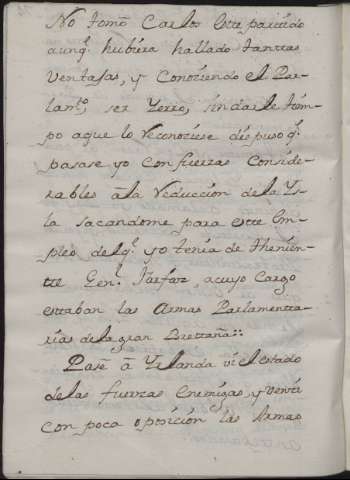 No tomò Carlos este partido
aunq.^e hubiera hallado tantas
Ventajas, y Conoziendo el Par-
lam.^to, ser Yerro, sin darle tiem-
po aque lo Reconoziese dispuso q.^e
pasase yo con fuerzas Conside-
rables â la Reduccion de la Ys-
la sacandome para este Em-
pleo del q.^e yo tenia de Thenien-
te Gen.^l Farfax, acuyo Cargo
estaban las Armas Parlamenta-
rias de la gran Brettaña::
Pasè â Yrlanda vi el estado
de las fuerzas Enemigas, y venti
con poca oposicion las Armas